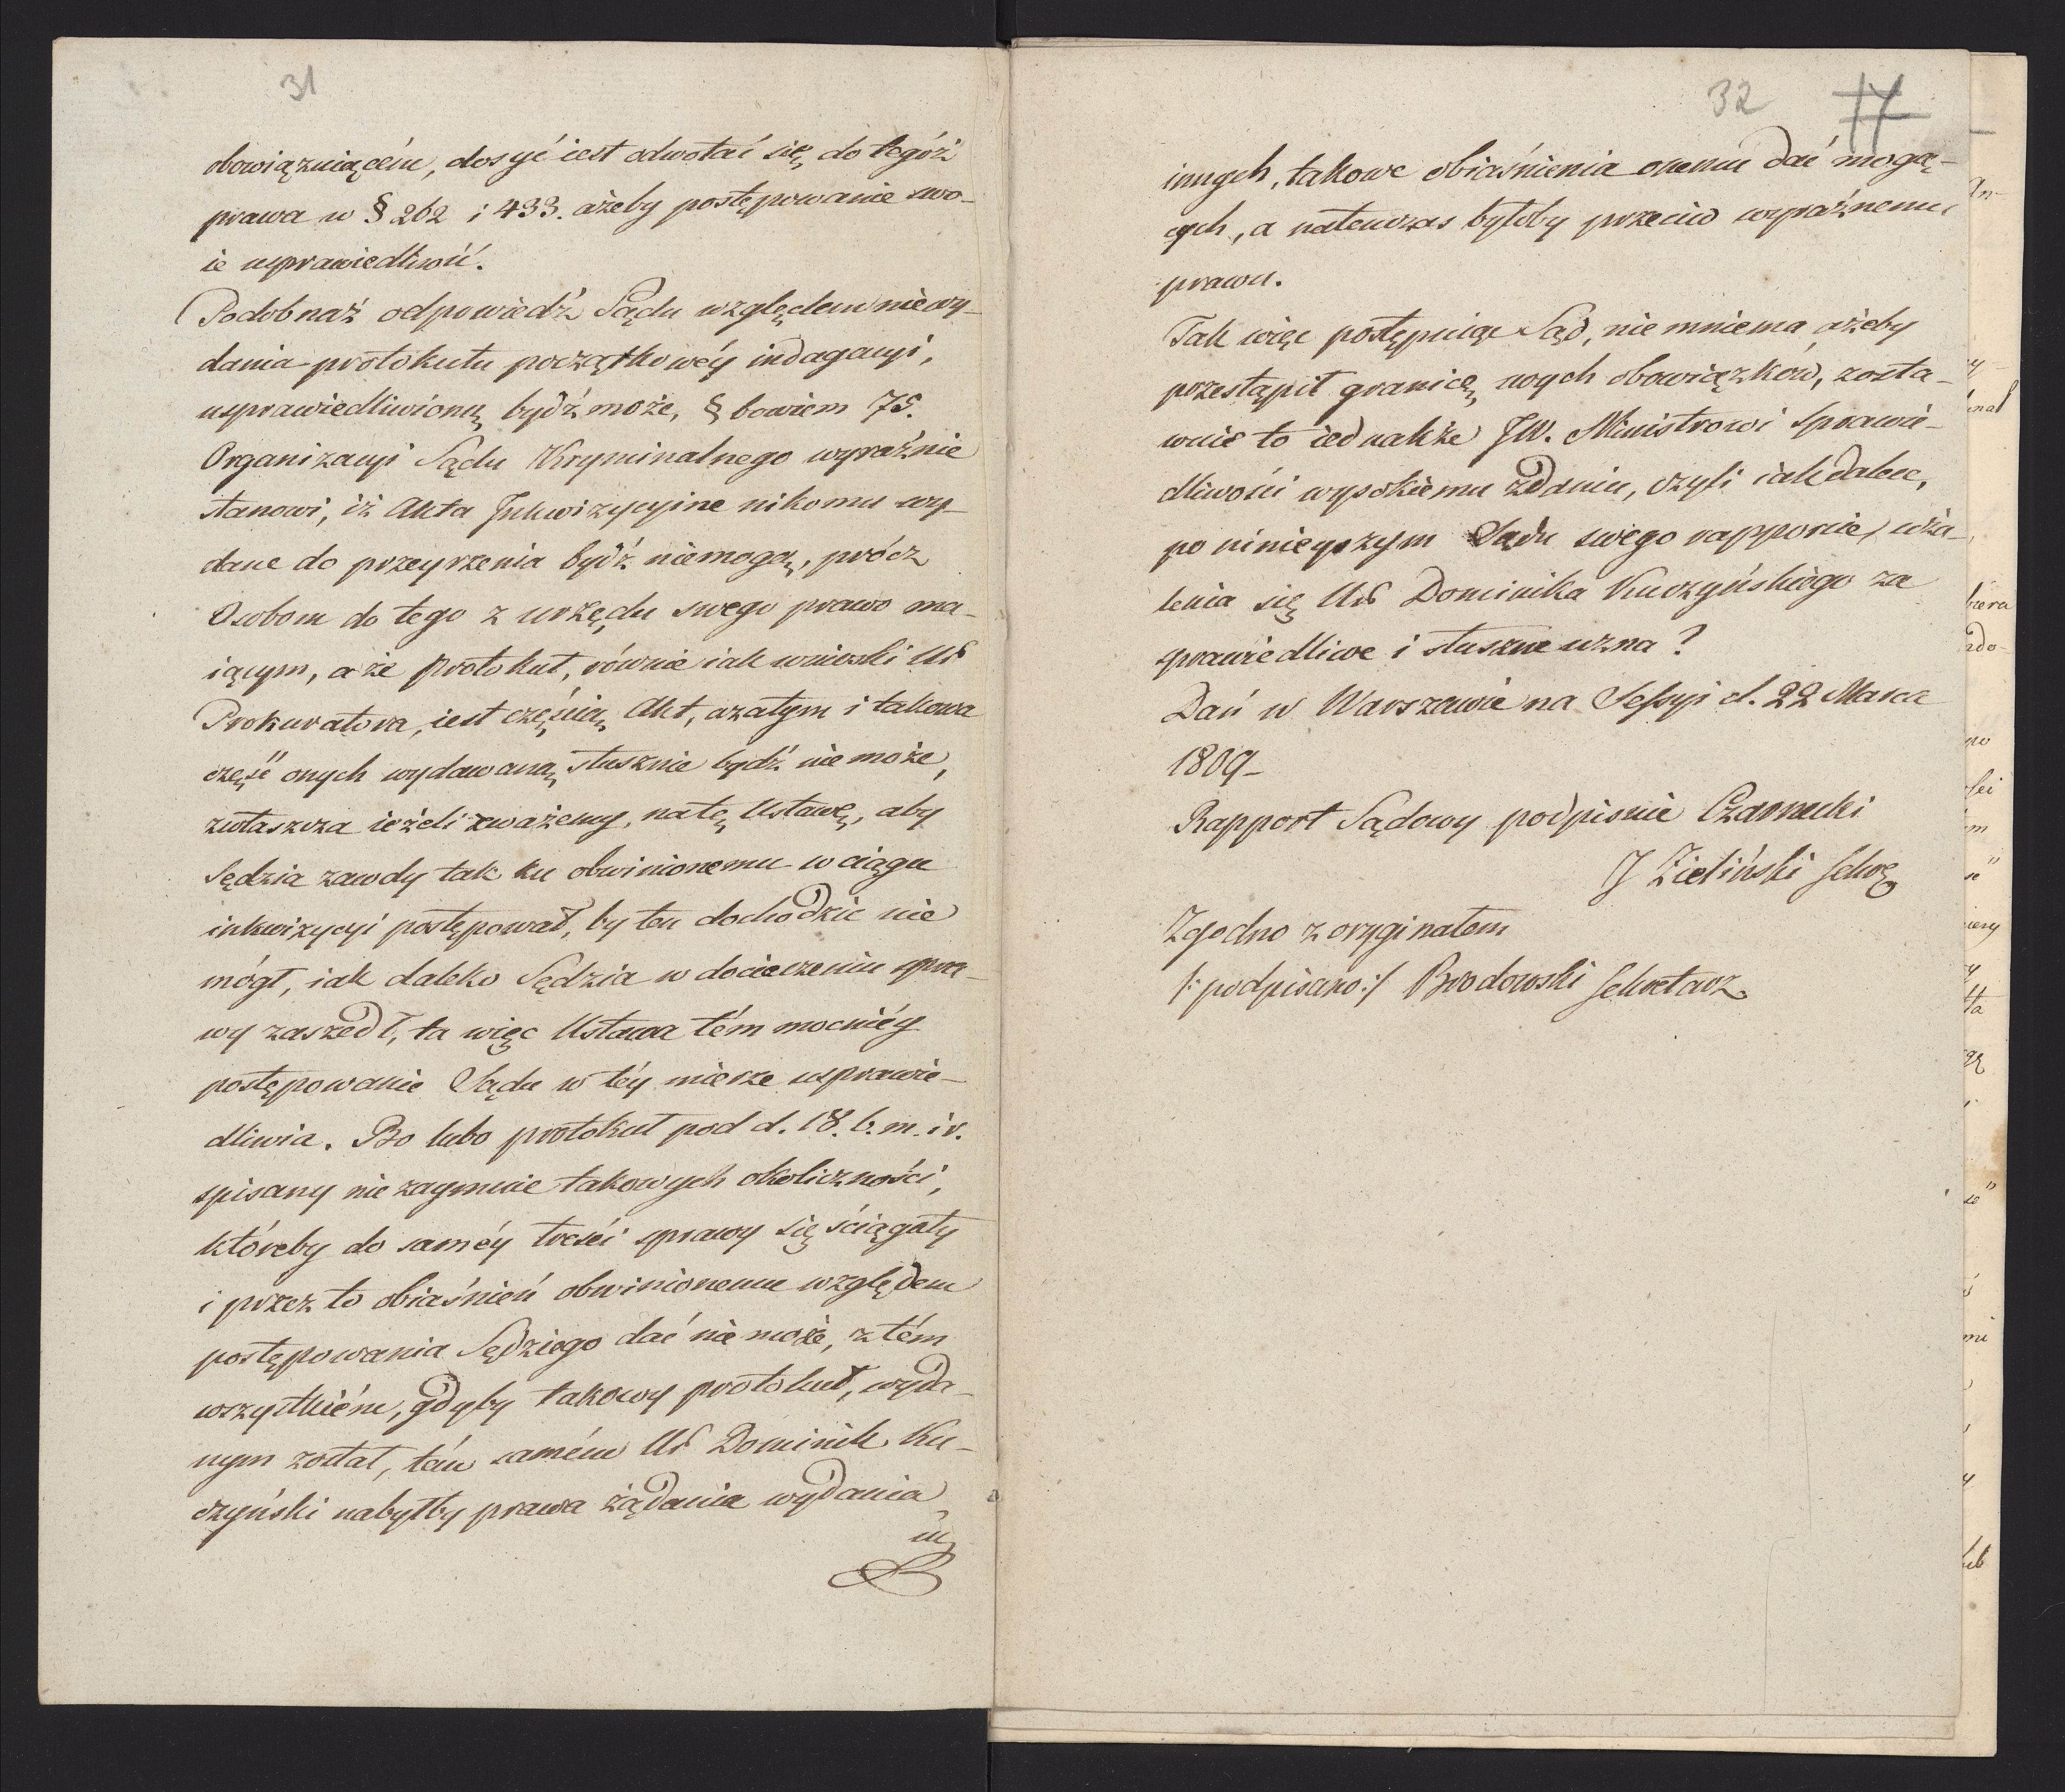 31
obowiązuiącém, dosyć iest odwołać się do tegóż
prawa w § 262 i 433. ażeby postępowanie swo-
ie usprawiedliwić.
Podobnaż odpowiedź Sądu względem niewy-
dania protokułu początkowéy indagacyi,
usprawiedliwioną bydź może, § bowiem 75.
Organizacyi Sądu Kryminalnego wyraźnie
stanowi, iż Akta Inkwizycyine nikomu wy-
dane do przeyrzenia bydź niemogą, prócz
Osobom do tego z urzędu swego prawo ma-
iącym, a że protokuł, równie iak wnioski Ur
Prokuratora, iest częścią Akt, azatym i takowa
część onych wydawaną słusznie bydź nie może,
zwłaszcza ieżeli zważemy, na tę Ustawę, aby
Sędzia zawdy tak ku obwinionemu w ciągu
inkwizycyi postępował, by ten dochodzić nie
mógł, iak daleko Sędzia w docieczeniu spra-
wy zaszedł, ta więc Ustawa tém mocniéy
postępowanie Sądu w téy mierze usprawie-
dliwia. Bo lubo protokuł pod d. 18. b. m. i r.
spisany nie zaymuie takowych okoliczności,
któreby do saméy treści sprawy się ściągały
i przez to obiaśnień obwinionemu względem
postępowania Sędziego dać nie może, z tém
wszystkiém, gdyby takowy protokuł, wyda-
nym został, tém samém Ur Dominik Ku-
czyński nabyłby prawa żądania wydania
in
32 17
innych, takowe obiaśnienia onemu dać mogą-
cych, a natenczas byłoby przeciw wyraźnemu
prawu.
Tak więc postępuiąc Sąd, nie mniema ażeby
przestąpił granicę swych obowiązków, zosta-
wuie to iednakże JW. Ministrowi Sprawie-
dliwości wysokiemu zdaniu, czyli iak dalece,
po ninieyszym Sądu swego rapporcie, uża-
lenia się Ur Dominika Kuczyńskiego za
sprawiedliwe i słuszne uzna?
Dań w Warszawie na Sessyi d. 22 Marca
1809-
Rapport Sądowy podpisuie Czarnecki
J Zieliński Sekr
Zgodno z oryginałem
/:podpisano:/ Brodowski Sekretarz